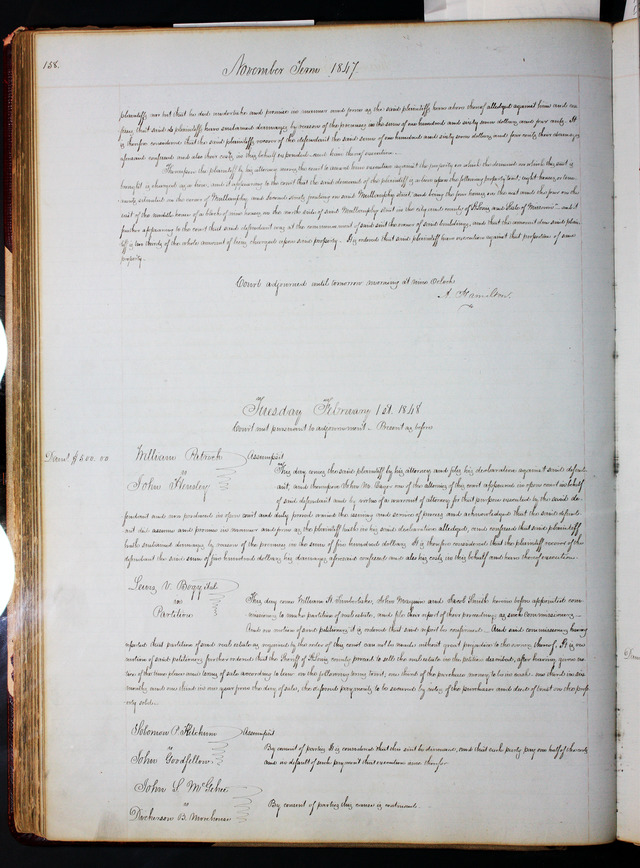 158.
November Term 1847.
plaintiffs, nor but that he did undertake and promise in manner and form as the said plaintiffs have above thereof alledged against him and
that said plaintiffs have sustained damages by reason of the premises in the sum of one hundred and sixty some dollars and four cents. It
is therefore considered that the said plaintiffs recover of the defendant the said sum of one hundred and sixty some dollars and four cents their damages
aforesaid and also their costs in this behalf expended and have thereof execution.
Thereupon the plaintiff by his attorney moves the court to award him execution against the property on which the demand on which the suit is
brought is charged as a lien, and it appearing to the court that the said demand of the plaintiff is a lien upon the following property to wit, eight houses
situated on the corner of and Seventh streets on said street and being the four houses on the east and the four on the
west of the middle house of a block of nine houses on the north side of said street in the city and county of St Louis and State of Missouri - and it
further appearing to the court that said defendant was at the commencement of said suit the owner of said buildings, and that the amount due said plain-
tiff is two thirds of the whole amount of liens charged upon said property. It is ordered that said plaintiff have execution against that proportion of said
property.
Court adjourned until tomorrow morning at nine Oclock
A. Hamilton.
Tuesday February 1st. 1848
Court met pursuant to adjournment - Present as before
Dam! $500.00
William
vs
John Hensley
Assumpsit
This day comes the said plaintiff by his attorney and files his declaration against said defend-
ant, and thereupon John M. one of the attorneys of this court appeared in open court in behalf
of said defendant and by virtue of a warrant of attorney for that purpose executed by the said de-
fendant and now produced in open court and duly proved waives the issuing and service of process and acknowledges that the said defend-
ant did assume and promise in manner and form as the plaintiff hath in his said declaration alledged, and confesses that said plaintiff
hath sustained damages by reason of the premises in the sum of five hundred dollars. It is therefore considered that the plaintiff recover of the
defendant the said sum of five hundred dollars his damages aforesaid confessed and also his costs in this behalf and have thereof execution.
Lewis V. Bogy et al
Partition
This day come William H. John and Jacob Smith herein before appointed com-
missioners to make partition of real estate, and file their report of their proceedings as such Commissioners
And on motion of said petitioners it is ordered that said report be confirmed. And said commissioners having
reported that partition of said real estate as required by the order of this court can not be made without great prejudice to the owners thereof, It is on
motion of said petitioners further ordered that the Sheriff of St Louis county proceed to sell the real estate in the petition described, after having given no-
tice of the time place and terms of sale according to law on the following terms to wit, one third of the purchase money to be in cash. one third in six
months and one third in one year from the day of sale, the deferred payments to be secured by notes of the purchaser and deeds of trust on the prop-
erty sold.
Solomon P. Ketchum
vs
John Goodfellow
Assumpsit
By consent of parties It is considered that this suit be dismissed, and that each party pay one half of the costs
and in default of such payment that execution issue therefor.
John S. McGehee
vs
Dickerson B. Morehouse
By consent of parties this cause is continued.